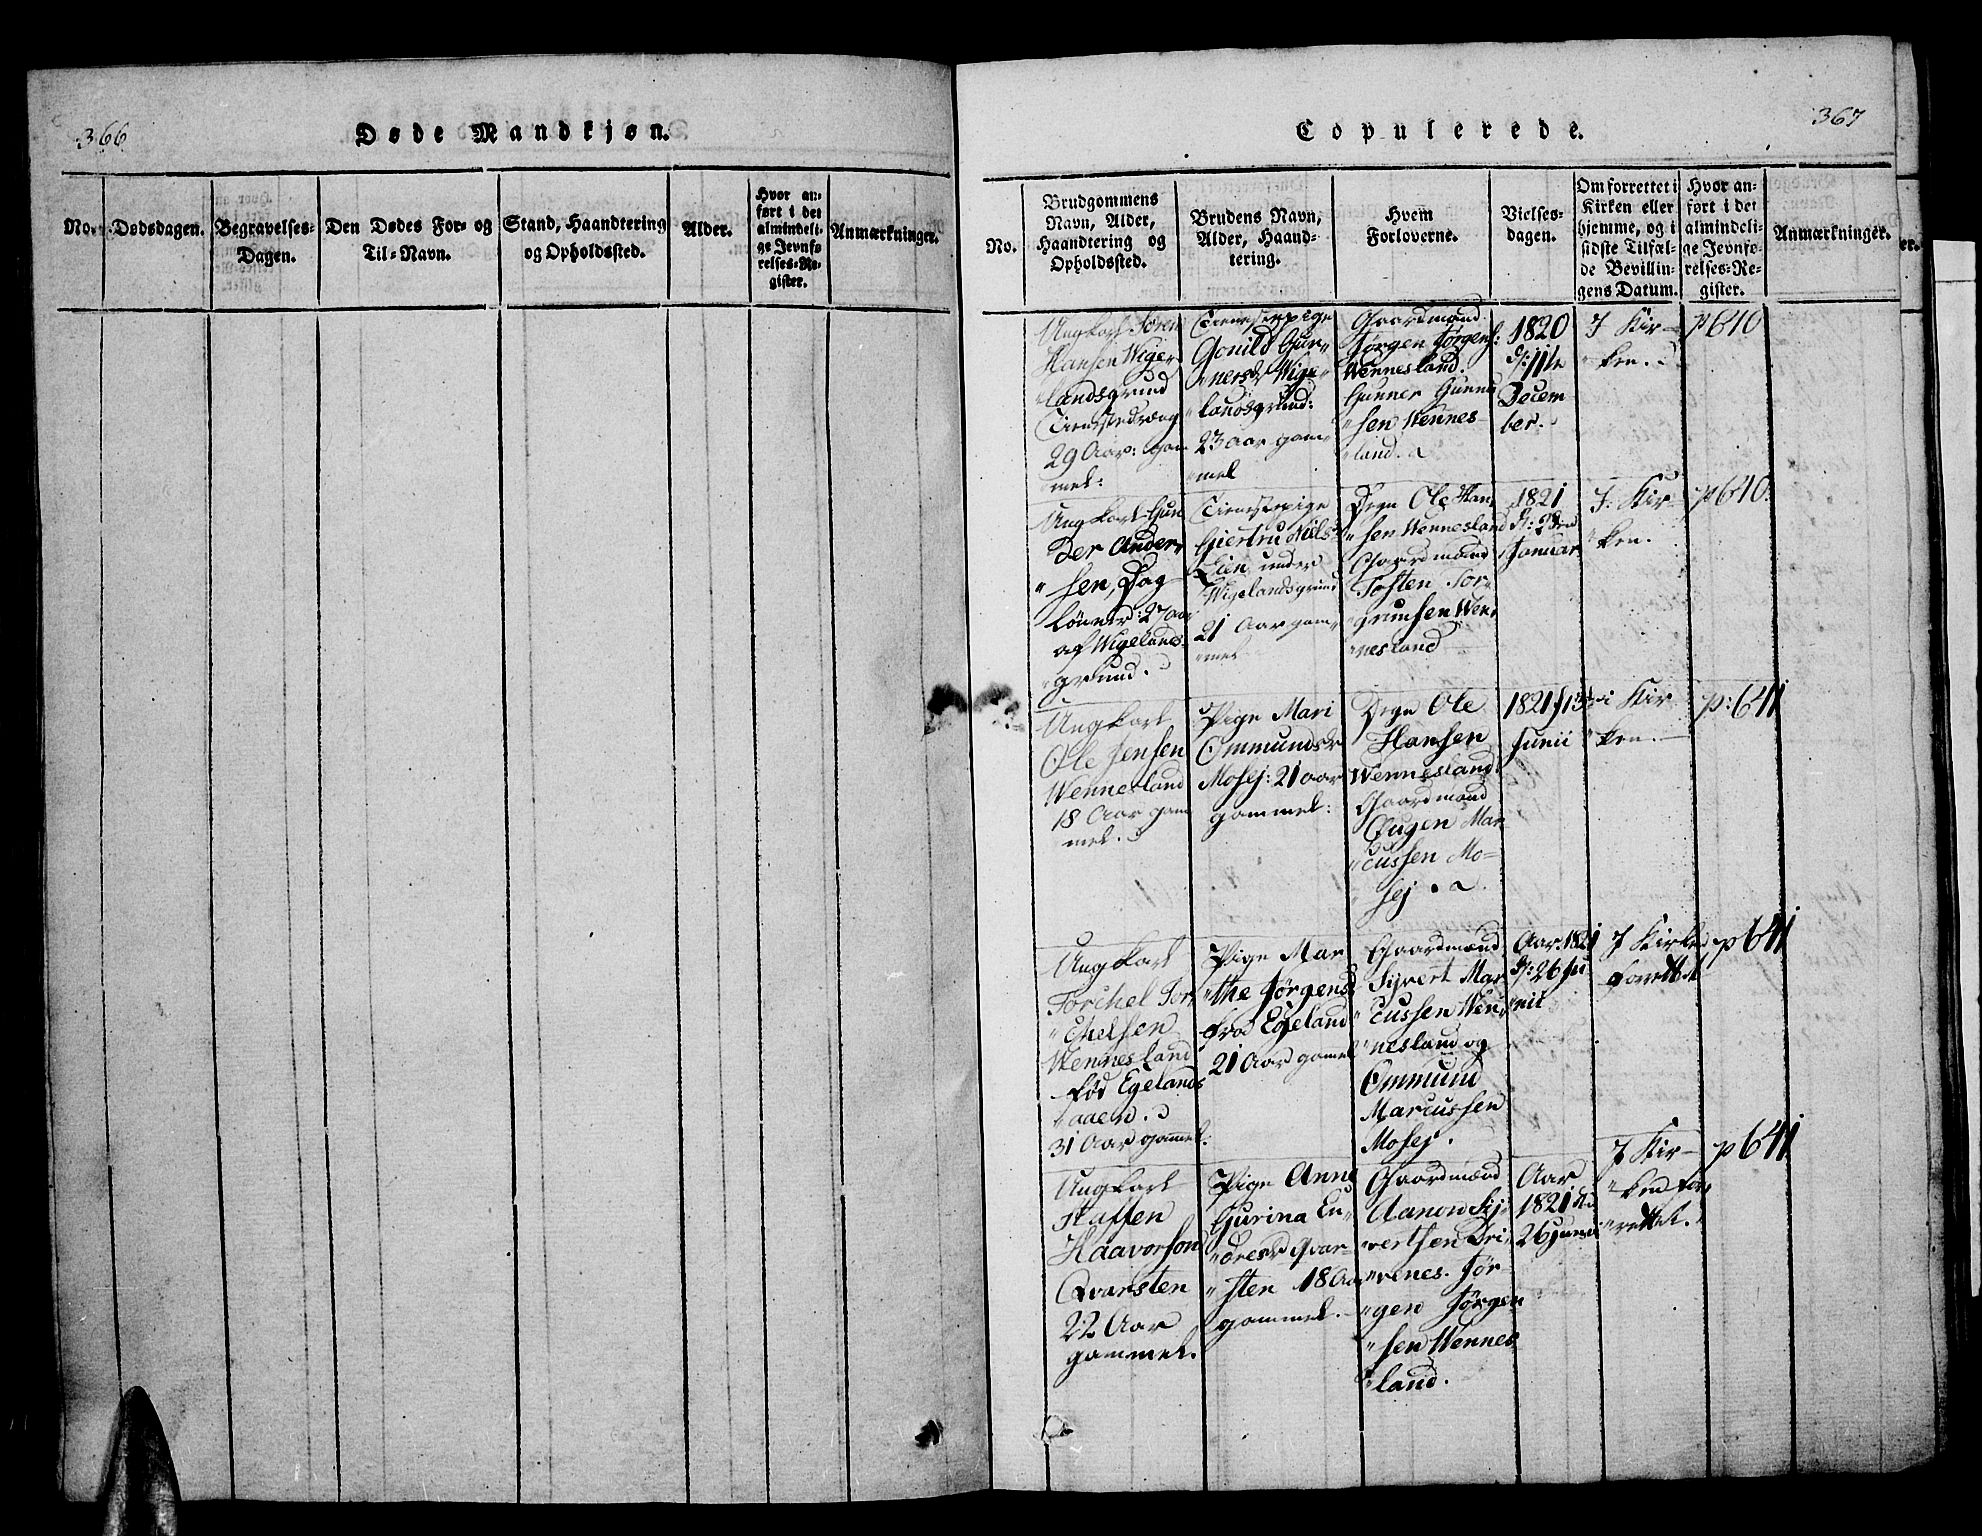 366
Døde Mandkjøn.
No.
Dødsdagen.
Begravelses-
Dagen.
Den Dødes For- og
Til-Navn.
Stand, Haandtering
og Opholdssted.
Alder.
Hvor an-
ført i det
almindeli-
ge Jevnfø-
relses-Re-
gister.
Anmærkninger.
367
Copulerede.
No.
Brudgommens
Navn, Alder,
Haandtering og
Opholdssted.
Brudens Navn,
Alder, Haand-
tering.
Hvem
Forloverne.
Vielses-
dagen.
Om forrettet i
Kirken eller
hjemme, og i
sidste Tilfæl-
de Bevillin-
gens Datum.
Hvor an-
ført i det
almindeli-
ge Jevnfø-
relses-Re-
gister.
Anmærkninger.
Ungkarl Søren
Hansen Wige-
landsgrund
Tienestedreng
29 Aar: gam
mel:
Tienestepige
Gonild Gun-
nersdr Wige-
landsgrund:
23 aar gam-
mel
Gaardmænd
Jørgen Jørgens:
Wennesland.
Gunner Gunne
sen Wennes
land.
1820
d: 11te
Decem
ber.
I Kir-
ken.
p 640
Ungkarl Gun
der Ander-
sen, Dag-
lønner: 27 aar
af Wigelands-
grund.
Tienestepige
Giertru Niels
Eien under
Wigelandsgrund
21 Aar gam-
mel
Degn Ole Han-
sen Wennesland
Gaardmand
Tosten Tor-
grimsen Wen-
nesland
1821
d: 2den
Januar
I: Kir-
ken.
p 640:
Ungkarl
Ole Jensen
Wennesland
18 Aar gam
mel.
Pige Mari
Ommundsdr
Mosej: 21 aar
gammel:
Degn Ole
Hansen
Wennesland
Gaardmand
Augen Mar
cussen Mo-
sej
1821 d 13
Junii
i Kir
ken.
p: 641
Ungkarl
Torchel Tor-
chelsen
Wennesland
fød Egelands
aaen.
31 Aar gammel:
Pige Mar
the Jørgensd
fra Egeland
21 Aar gamel
Gaardmænd
Sijvert Mar
cussen Wen-
nesland og
Ommund
Marcussen
Mosej.
Aar: 1821
d: 26 Ju
nii
I Kirken
forrettet
p 641
Ungkarl
Staffen
Haavorson
Qvarsten
22 Aar
gammel.
Pige Anne
Gurina En-
dresdr Qvar-
sten 18 Aar
gammel.
Gaardmænd
Aanon Sij-
vertsen Dri-
venes. Jør-
gen Jørgen
sen Wennes
land.
Aar
1821 d:
26 Junii
I Kir-
ken for-
rettet.
p 641